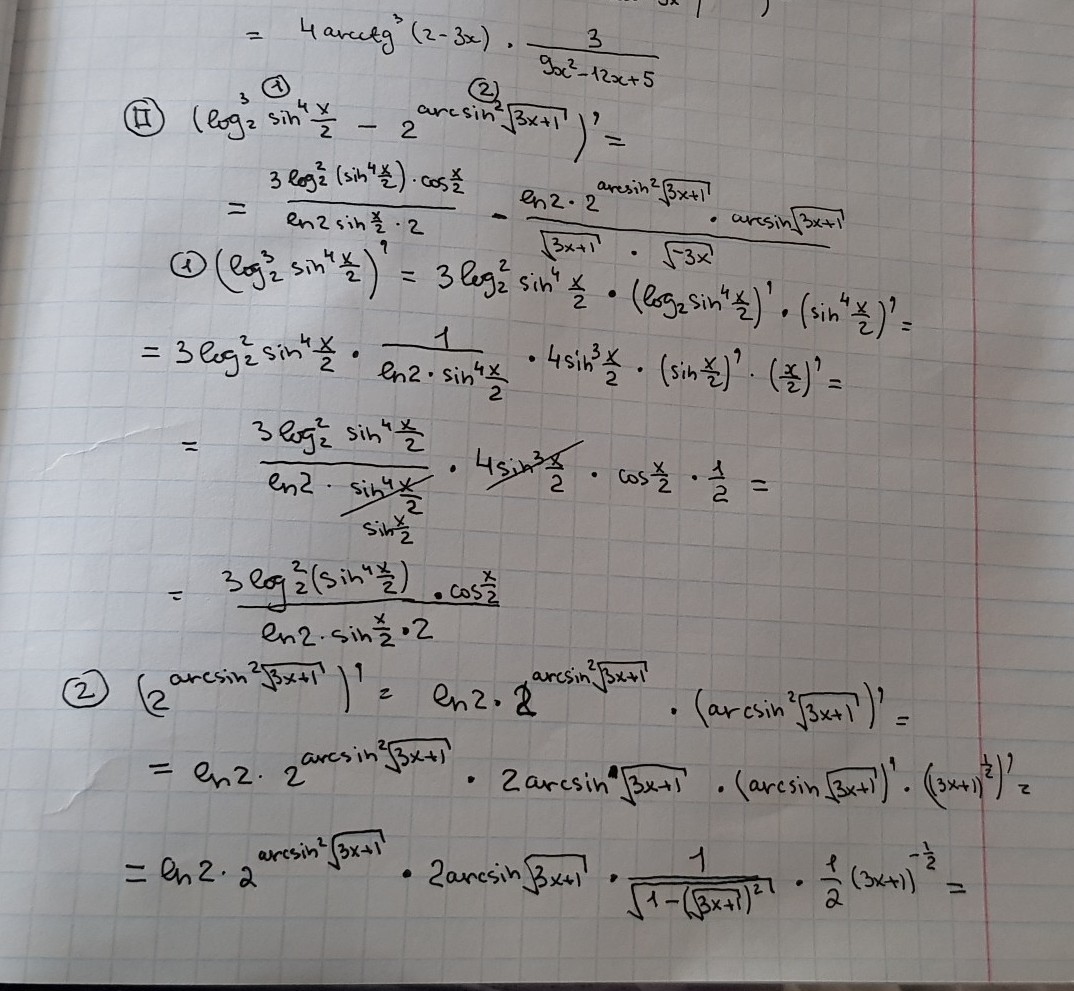 = 4 arcctg³ (2-3x) · 3/(9x²-12x+5)
① ②
Ⅱ (log₂³ sin⁴ x/2 - 2^(arcsin² √(3x+1)))' =
= (3 log₂² (sin⁴ x/2) · cos x/2)/(ln2 sin x/2 · 2) - (ln2 · 2^(arcsin² √(3x+1)) · arcsin √(3x+1))/(√(3x+1) · √(-3x))
① (log₂³ sin⁴ x/2)' = 3 log₂² sin⁴ x/2 · (log₂ sin⁴ x/2)' · (sin⁴ x/2)' =
= 3 log₂² sin⁴ x/2 · 1/(ln2 · sin⁴ x/2) · 4 sin³ x/2 · (sin x/2)' · (x/2)' =
= (3 log₂² sin⁴ x/2)/(ln2 · sin⁴ x/2) · 4 sin³ x/2 · cos x/2 · 1/2 =
sin x/2
= (3 log₂² (sin⁴ x/2) · cos x/2)/(ln2 · sin x/2 · 2)
② (2^(arcsin² √(3x+1)))' = ln2 · 2^(arcsin² √(3x+1)) · (arcsin² √(3x+1))' =
= ln2 · 2^(arcsin² √(3x+1)) · 2 arcsin √(3x+1) · (arcsin √(3x+1))' · ((3x+1)^(1/2))' =
= ln2 · 2^(arcsin² √(3x+1)) · 2 arcsin √(3x+1) · 1/√(1-(√(3x+1))²) · 1/2 (3x+1)^(-1/2) =